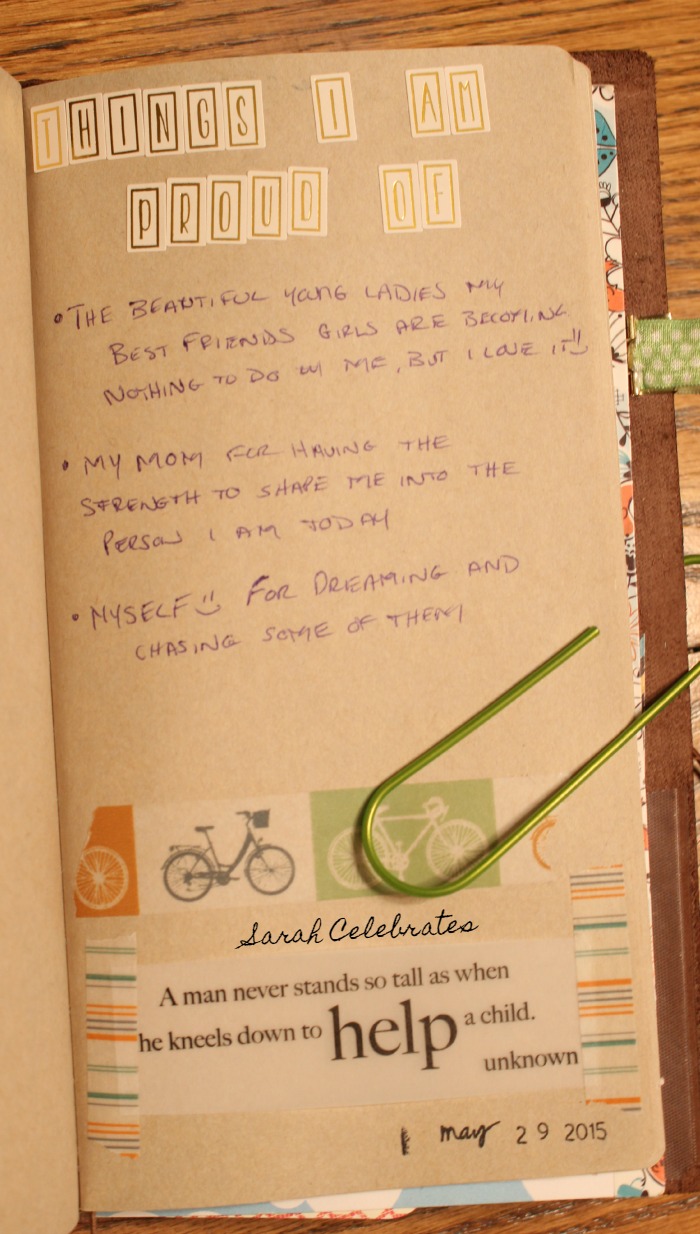 THINGS I AM
PROUD OF
• THE BEAUTIFUL YOUNG LADIES MY
BEST FRIENDS GIRLS ARE BECOMING
NOTHING TO DO W/ ME, BUT I LOVE IT
• MY MOM FOR HAVING THE
STRENGTH TO SHAPE ME INTO THE
PERSON I AM TODAY
• MYSELF FOR DREAMING AND
CHASING SOME OF THEM
Sarah Celebrates
A man never stands so tall as when
he kneels down to help a child.
unknown
may 29 2015